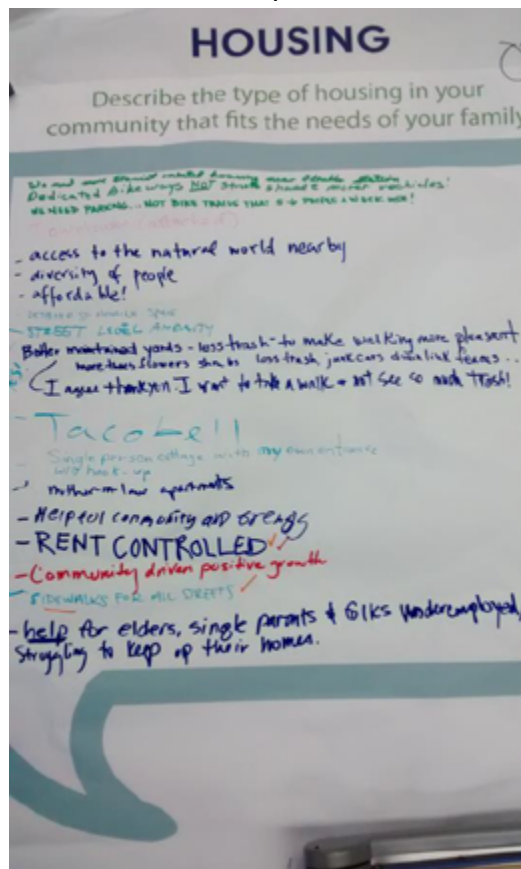 HOUSING
Describe the type of housing in your
community that fits the needs of your family
We need more rental housing near
Dedicated Bikeways NOT share motor vehicles!
WE NEED PARKING... NOT BIKE THAT PEOPLE A WEEK USE!
(attached)
- access to the natural world nearby
- diversity of people
- affordable!
- STREET LEVEL AMENITY
Better maintained yards - less trash - to make walking more pleasant
more trees flowers shrubs less trash, junk cars chain link fences...
I agree thankyou I want to take a walk & not see so much trash!
- Tacobell
- Single person cottage with my own entrance
w/d hook-up
- mother-in-law apartments
- Helpful community and
- RENT CONTROLLED
- Community driven positive growth
- SIDEWALKS FOR ALL STREETS
- help for elders, single parents & folks underemployed,
struggling to keep up their homes.